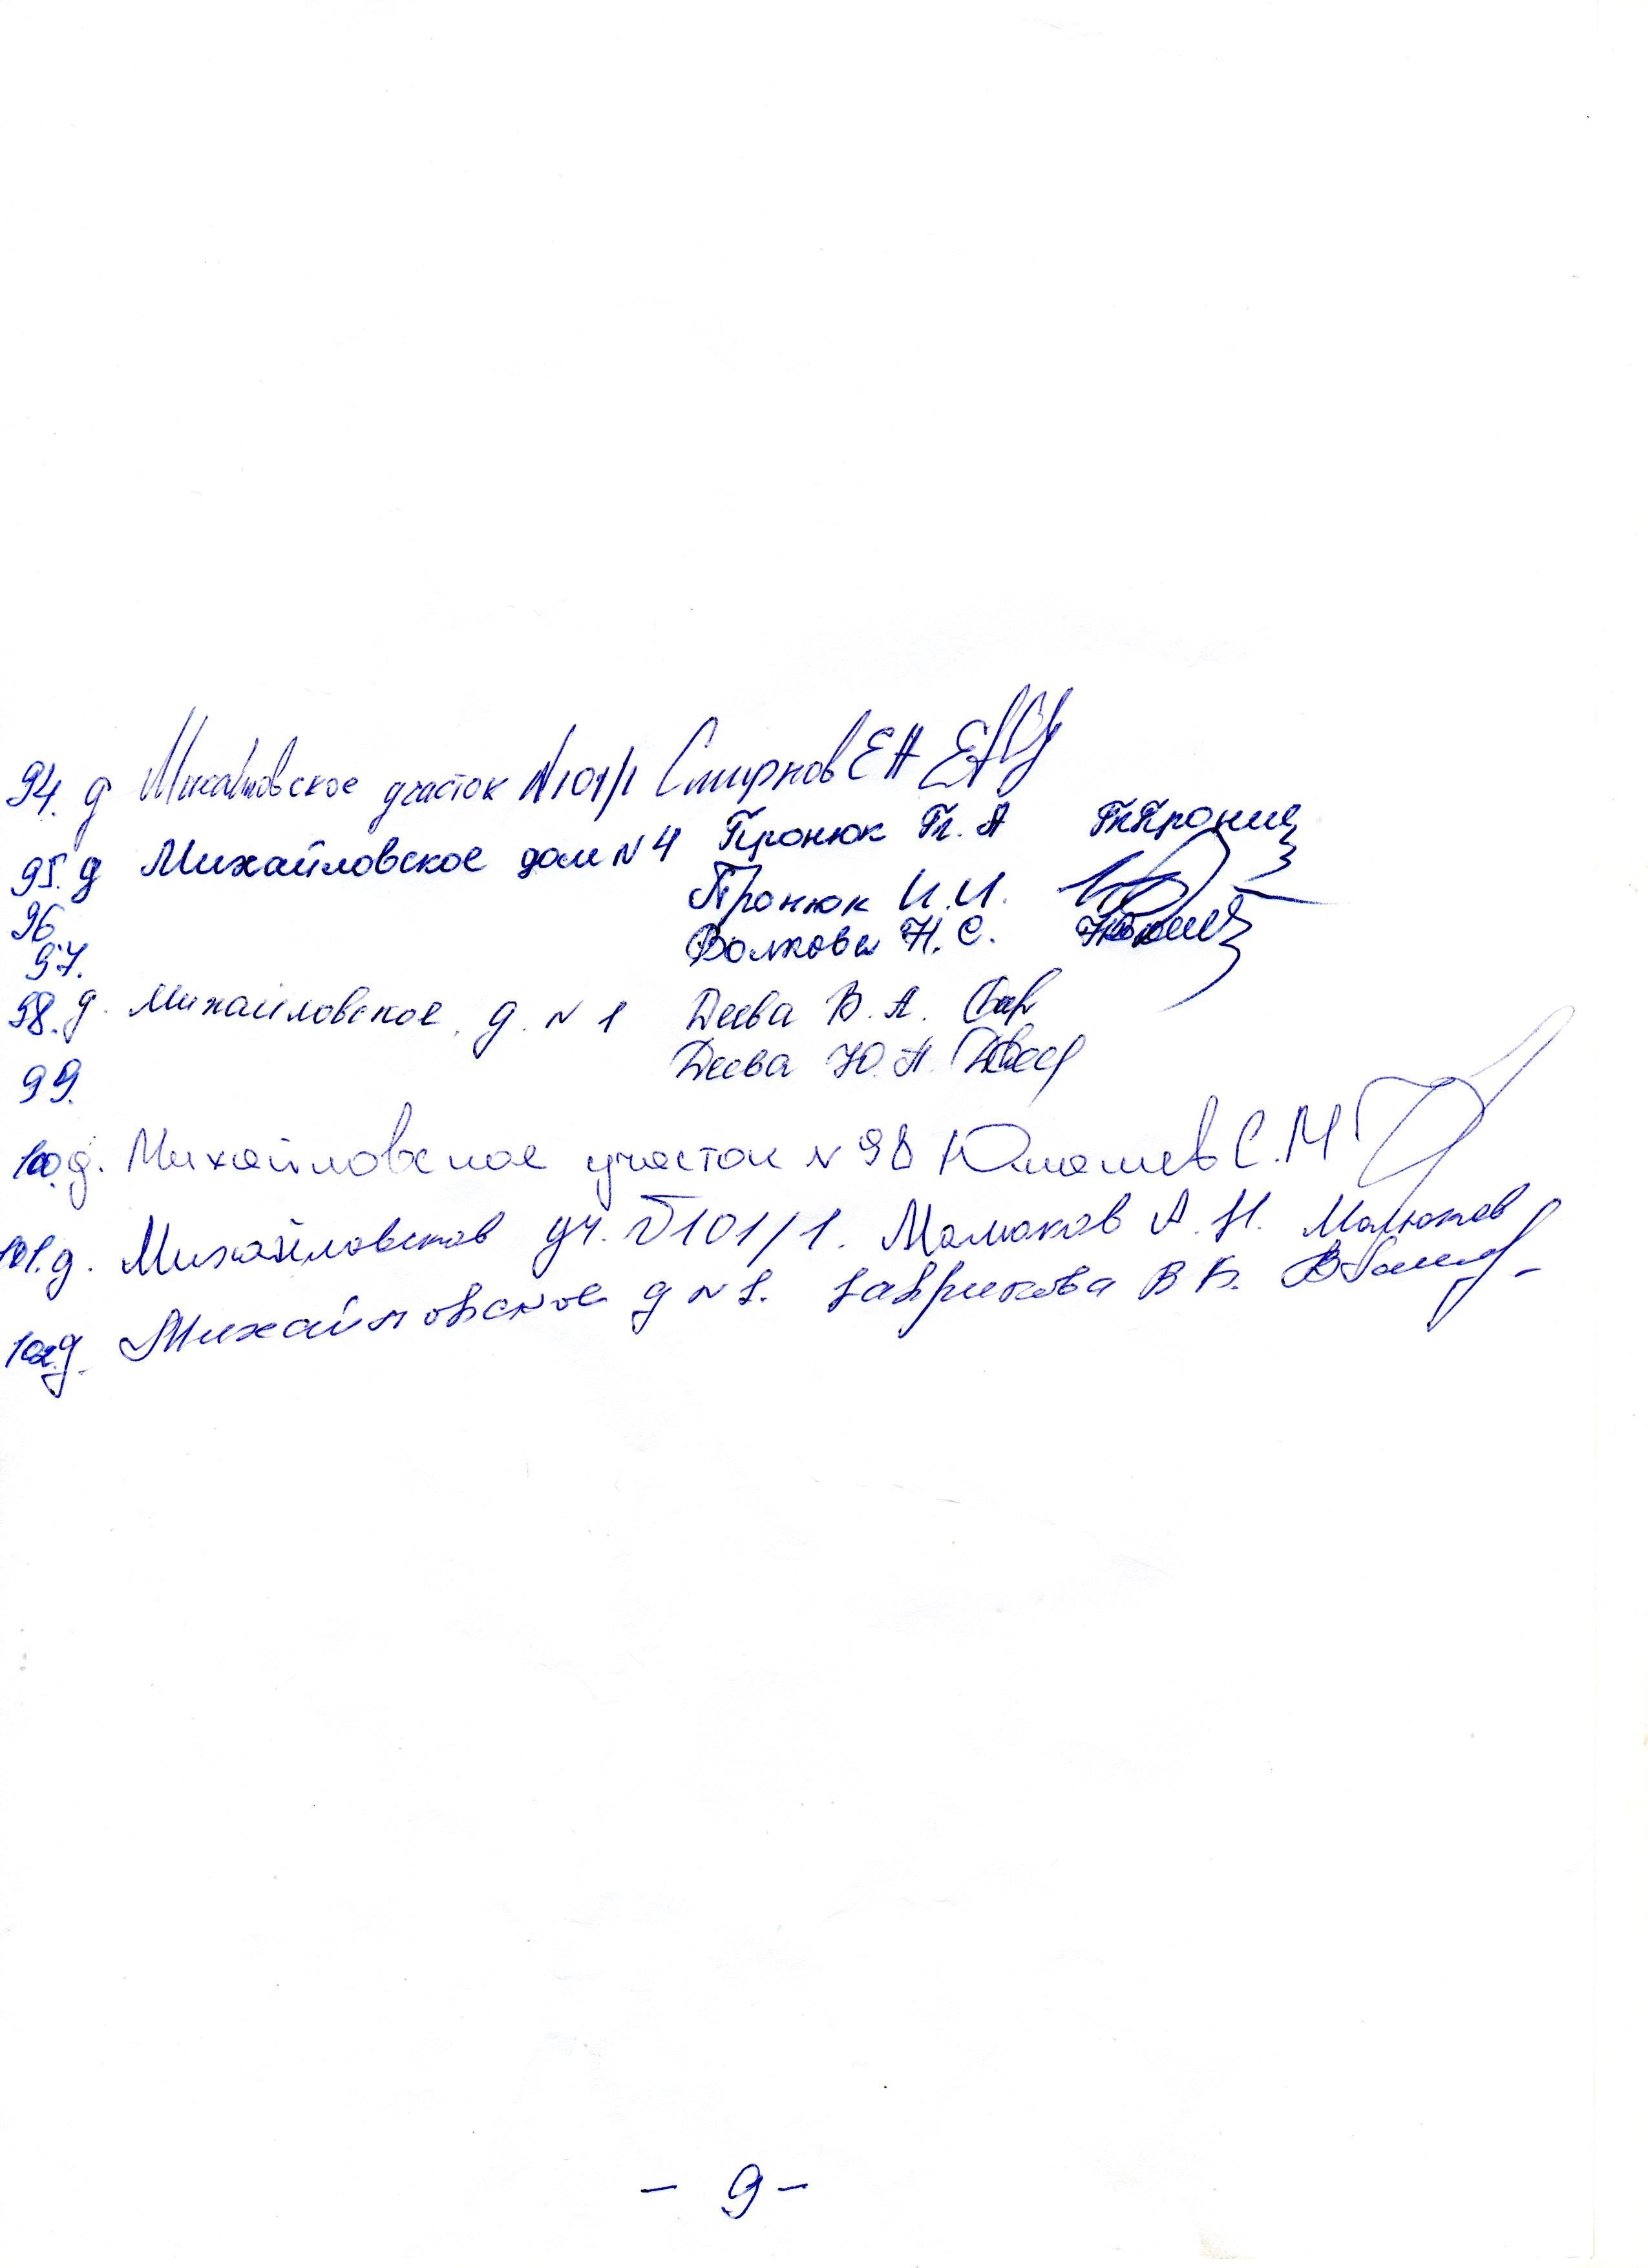 94. д Михайловское участок №101/1 Смирнов Е А
95. д Михайловское дом №4 Пронюк Гл. А ГлПронюк
96 Пронюк И.И.
97. Волкова Н.С.
98. д. Михайловское, д. №1 Деева В. А.
99. Деева Ю. А.
100. д. Михайловское участок №98 Юмашев С.М
101. д. Михайловское уч. №101/1. Малюков А. Н. Малюков
102 д. Михайловское д №8. Гаврикова В Б.
- 9 -